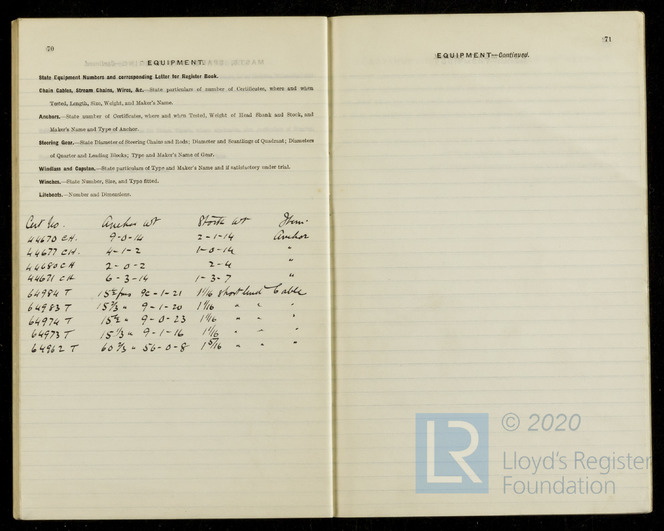 70
EQUIPMENT.
State Equipment Numbers and corresponding Letter for Register Book.
Chain Cables, Stream Chains, Wires, &c.—State particulars of number of Certificates, where and when
Tested, Length, Size, Weight, and Maker's Name.
Anchors.—State number of Certificates, where and when Tested, Weight of Head Shank and Stock, and
Maker's Name and Type of Anchor.
Steering Gear.—State Diameter of Steering Chains and Rods; Diameter and Scantlings of Quadrant; Diameters
of Quarter and Leading Blocks; Type and Maker's Name of Gear.
Windlass and Capstan.—State particulars of Type and Maker's Name and if satisfactory under trial.
Winches.—State Number, Size, and Type fitted.
Lifeboats.—Number and Dimensions.
Cert No. Anchor wt Stock wt Item.
44670 CH. 9-0-14 2-1-14 Anchor
44677 CH. 4-1-2 1-0-14 "
44680 CH 2-0-2 2-4 "
44671 CH 6-3-14 1-3-7 "
64984 T 9-1-21 1 1/16 Short Cable
64983 T 15 2/3 " 9-1-20 1 1/16 " " "
64974 T " 9-0-23 1 1/16 " " "
64973 T 15 1/3 " 9-1-16 1 1/16 " " "
64962 T 60 2/3 " 56-0-8 " " "
71
EQUIPMENT—Continued.
LR
© 2020
Lloyd's Register
Foundation